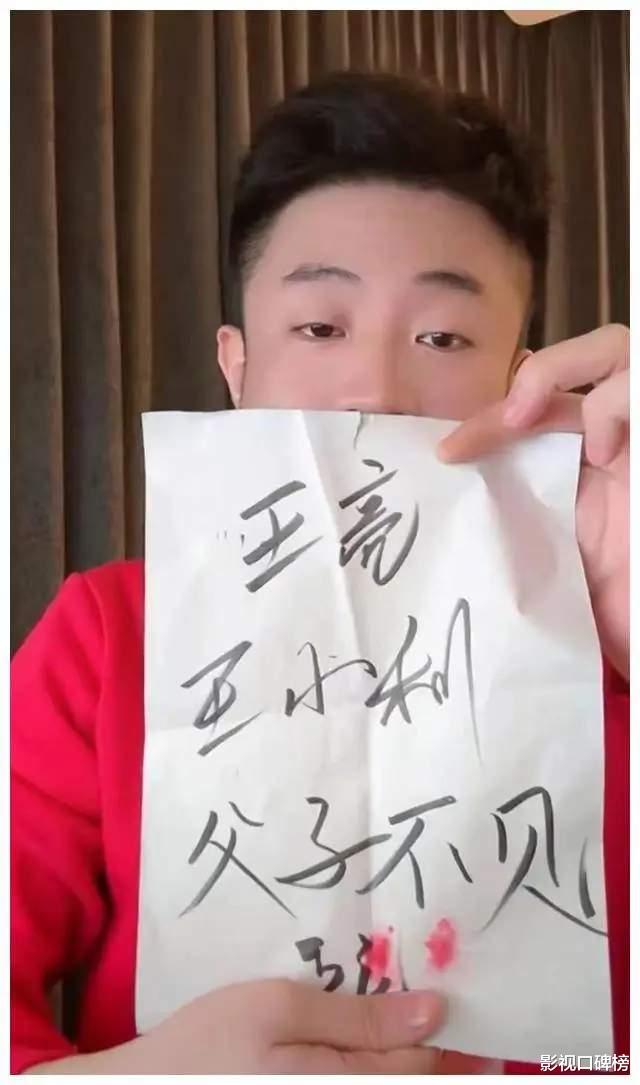 王亮
王小利
父子不见
影视口碑榜